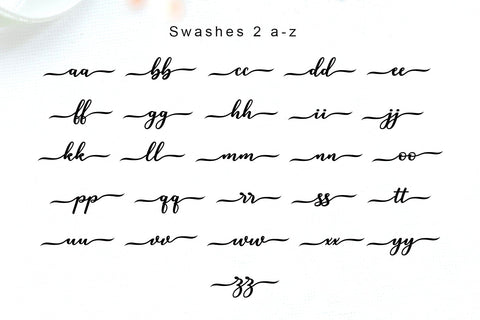 Swashes 2 a-z
aa bb cc dd ee
ff gg hh ii jj
kk ll mm nn oo
pp qq rr ss tt
uu vv ww xx yy
zz